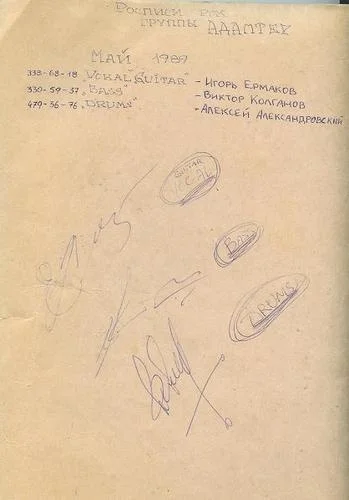 Росписи рок
группы АДАПТЕР
МАЙ 1989
338-68-18 „VOKAL GUITAR" - Игорь Ермаков
330-59-37 „BASS" - Виктор Колганов
479-36-76 „DRUMS" - Алексей Александровский
GUITAR
VOCAL
BASS
DRUMS